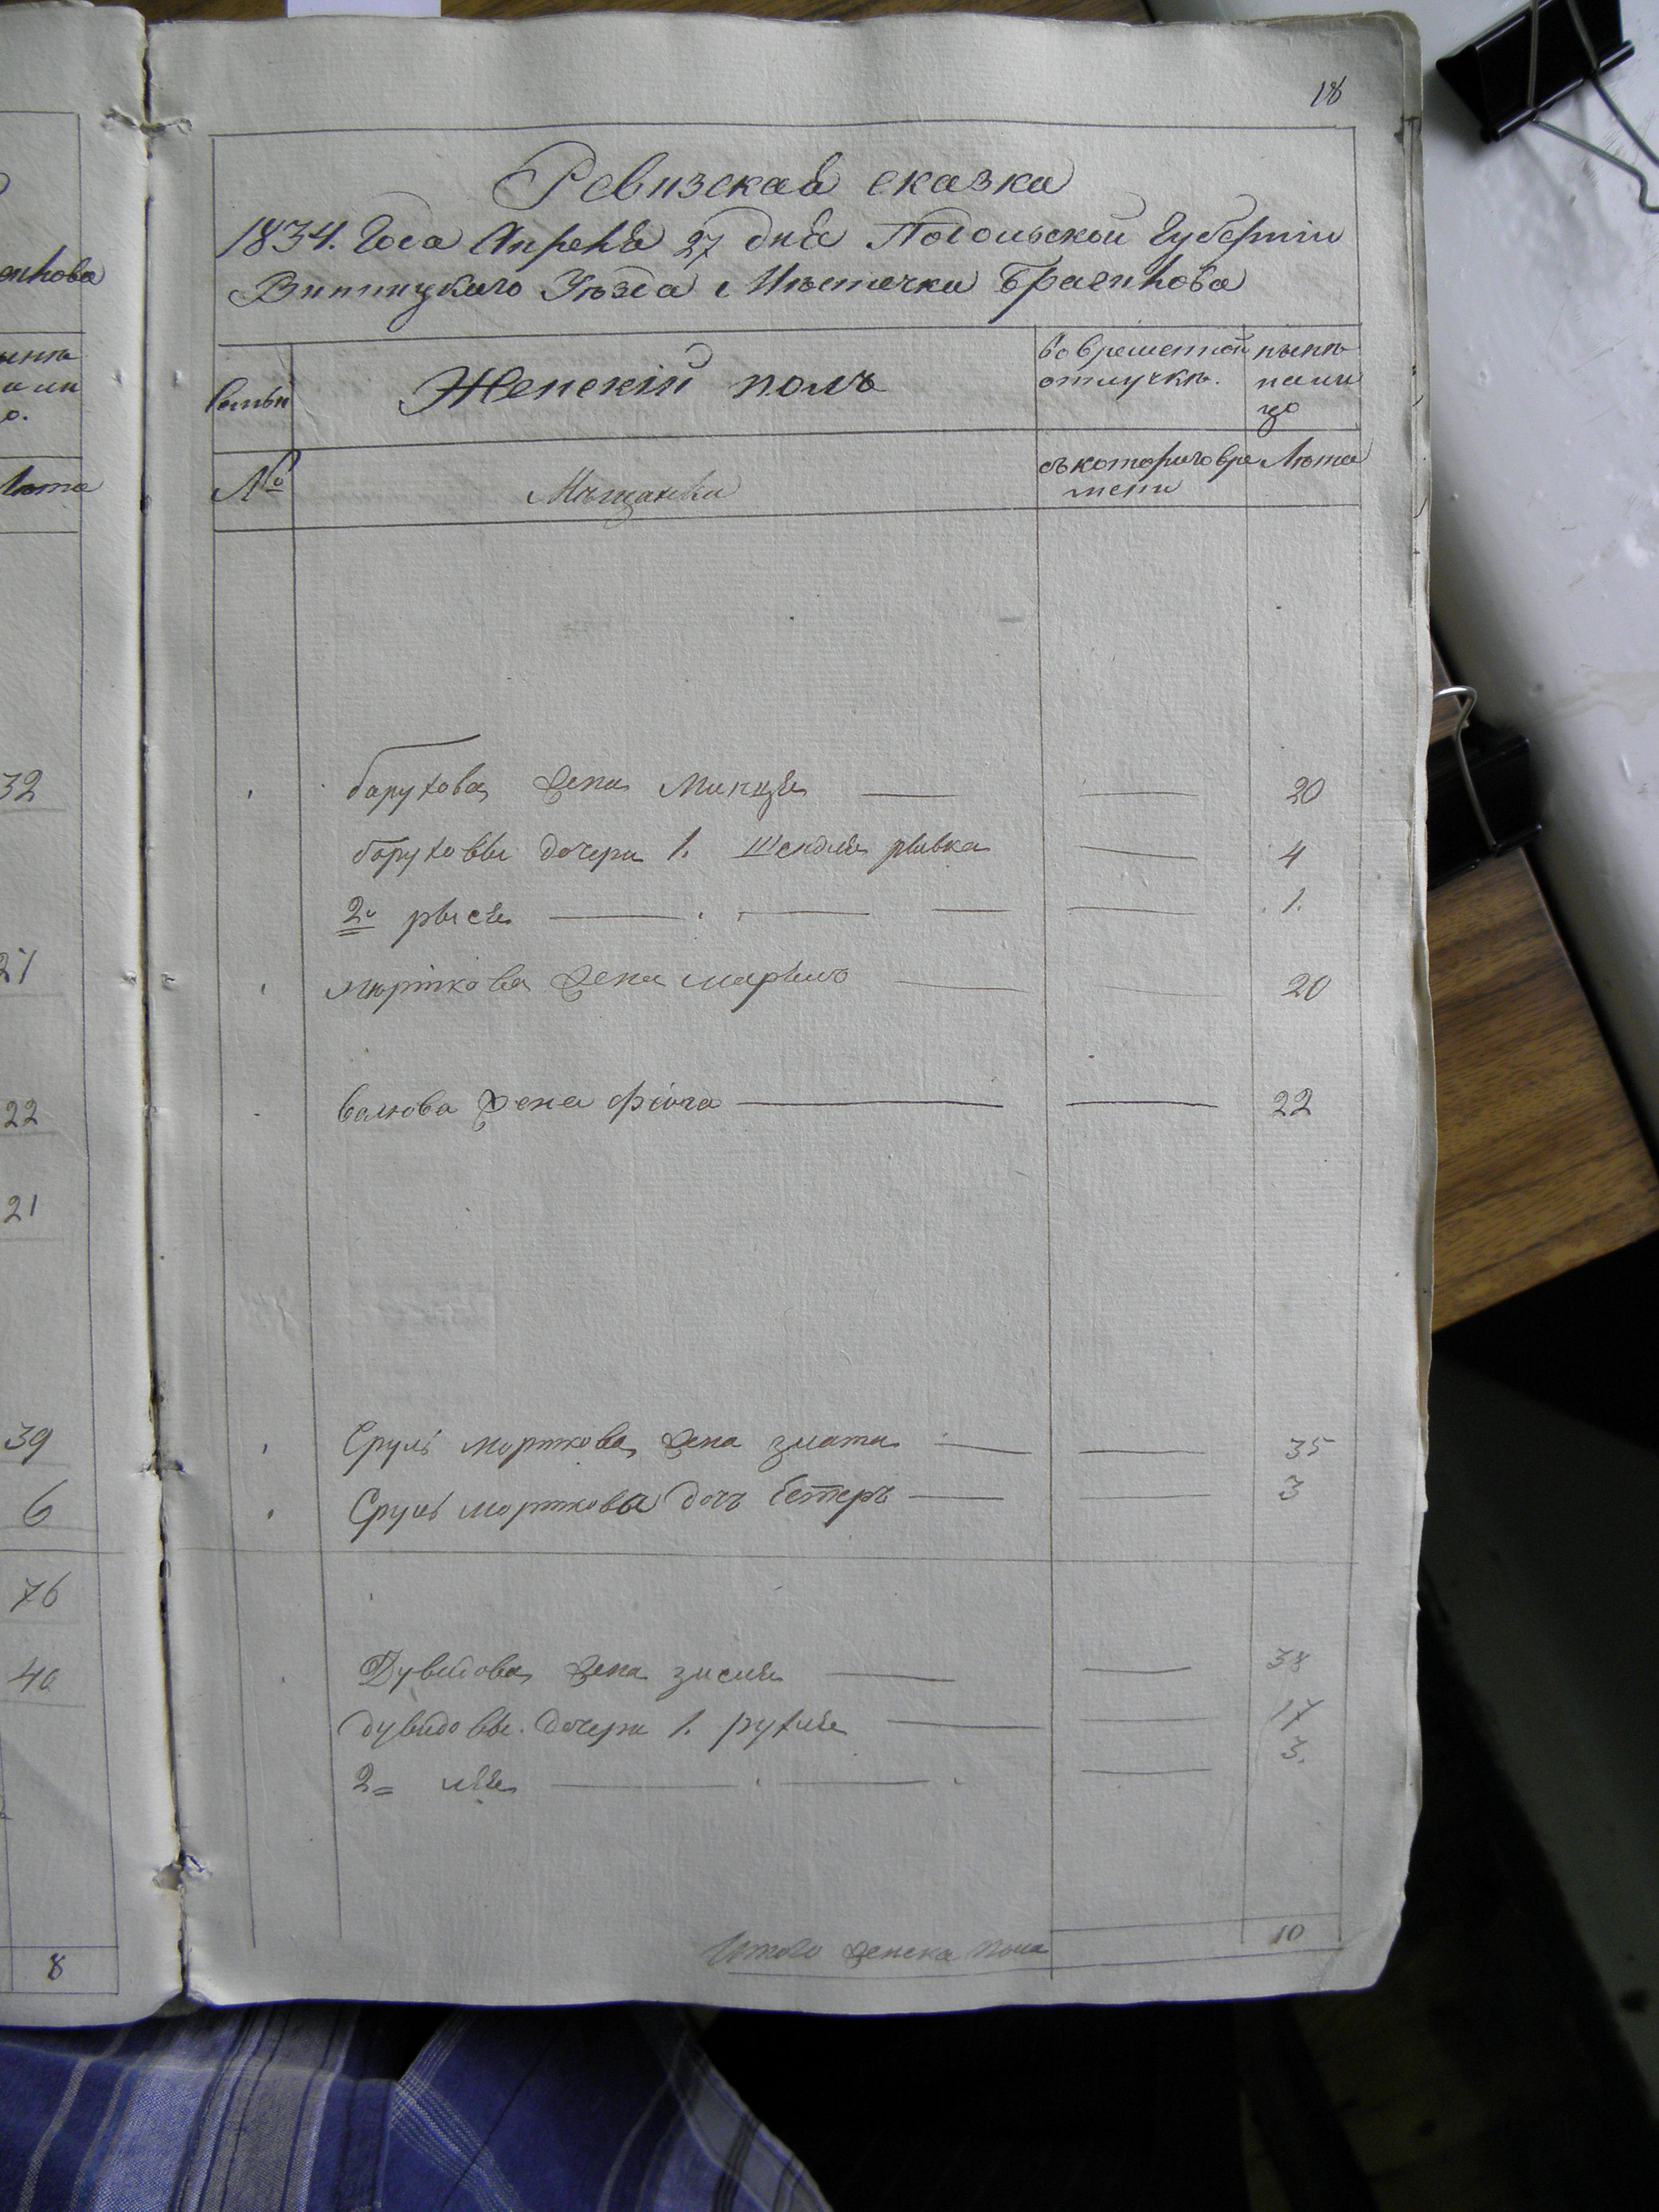 18
Ревизская сказка
1834. Года Апреля 27 дня Подольской Губернии
Винницкаго Уѣзда Мѣстечка Браилова
Семьи
Женскій полъ
во временной отлучкѣ.
нынѣ на лицо
№
Мѣщанки
съ котораго времени
Лѣта
барухова жена Минця 20
баруховы дочери 1. Шейдля рывка 4
2я рыся 1.
морткова жена марьямъ 20
жена 22
Сруль морткова жена злата 35
Сруль морткова дочь Естеръ 3
Дувидова жена зисля 38
дувидовы дочери 1. рухля 17
2= лея 3.
Итого женска пола 10
32
21
22
21
39
6
76
40
8